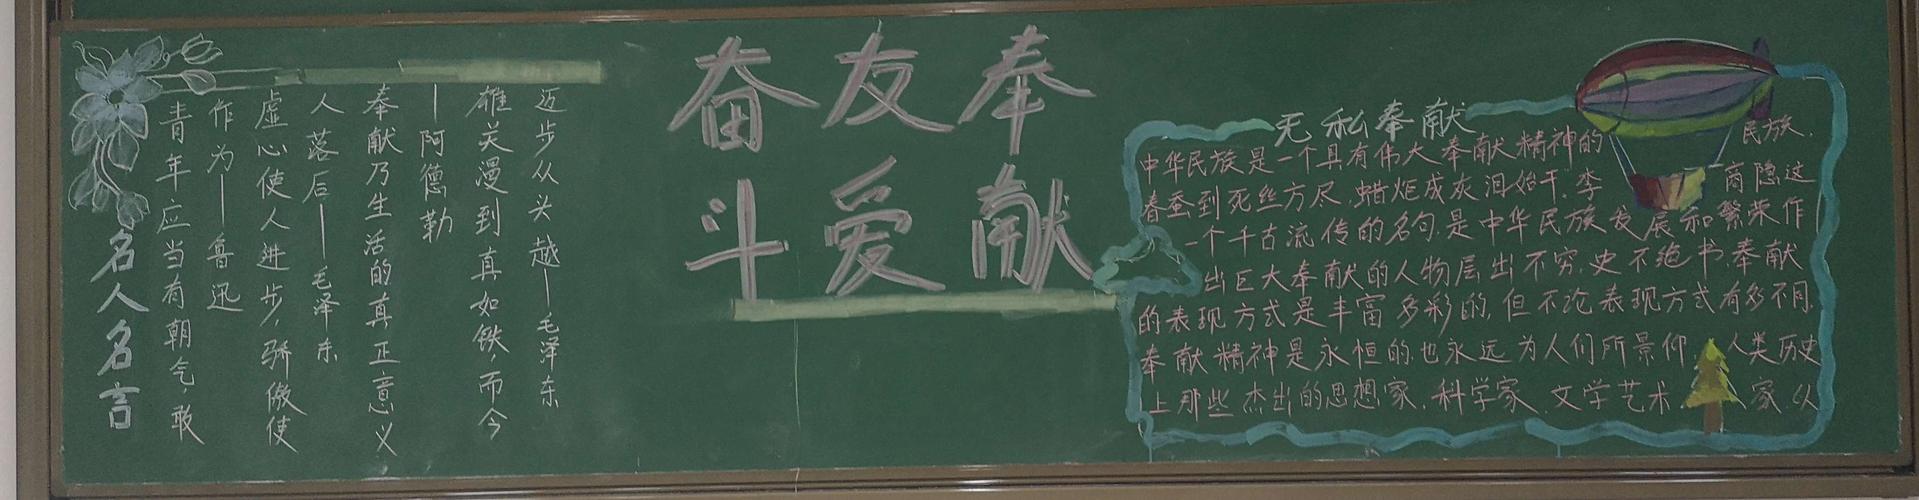 名人名言
青年应当有朝气,敢
作为——鲁迅
虚心使人进步,骄傲使
人落后——毛泽东
奉献乃生活的真正意义
—阿德勒
雄关漫到真如铁,而今
迈步从头越——毛泽东
奋斗
友爱
奉献
无私奉献
中华民族是一个具有伟大奉献精神的民族,
春蚕到死丝方尽,蜡炬成灰泪始干,李商隐这
一个千古流传的名句,是中华民族发展和繁荣作
出巨大奉献的人物层出不穷,史不绝书,奉献
的表现方式是丰富多彩的,但不论表现方式有多不同,
奉献精神是永恒的,也永远为人们所景仰,人类历史
上那些杰出的思想家,科学家,文学艺术家,从